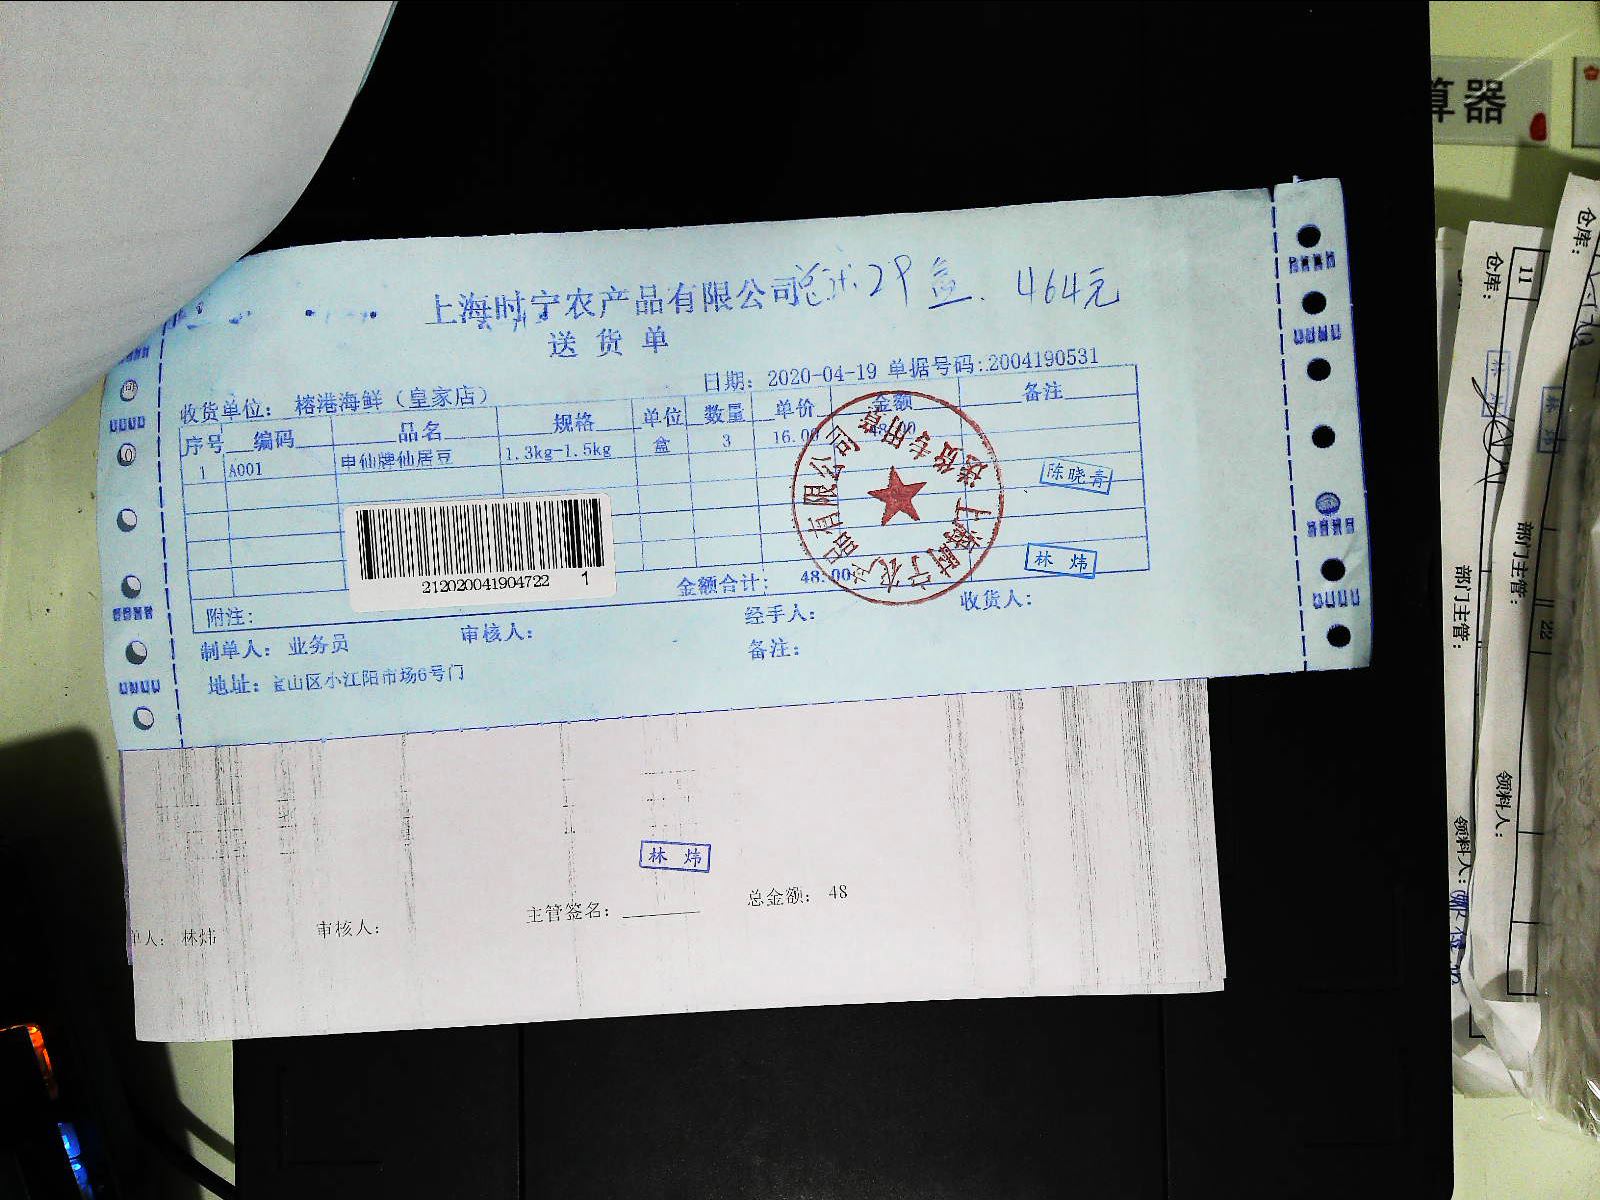 算器
上海时宁农产品有限公司 总计29盒. 464元
送货单
收货单位: 榕港海鲜（皇家店） 日期: 2020-04-19 单据号码:2004190531
序号 编码 品名 规格 单位 数量 单价 金额 备注
1 A001 申仙牌仙居豆 1.3kg-1.5kg 盒 3 16.00 48.00
陈晓青
上海时宁农产品有限公司
送货专用章
林 炜
212020041904722 1
金额合计: 48.00
附注: 经手人: 收货人:
制单人: 业务员 审核人: 备注:
地址: 宝山区小江阳市场6号门
林 炜
单人: 林炜 审核人: 主管签名: 总金额: 48
仓库:
部门主管:
领料人:
11
22
仓库:
部门主管:
领料人: